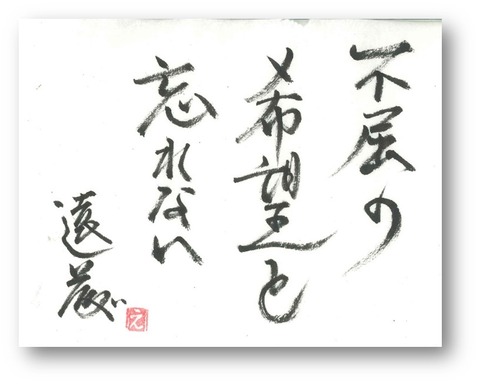 不屈の
希望を
忘れない
遠藏
え